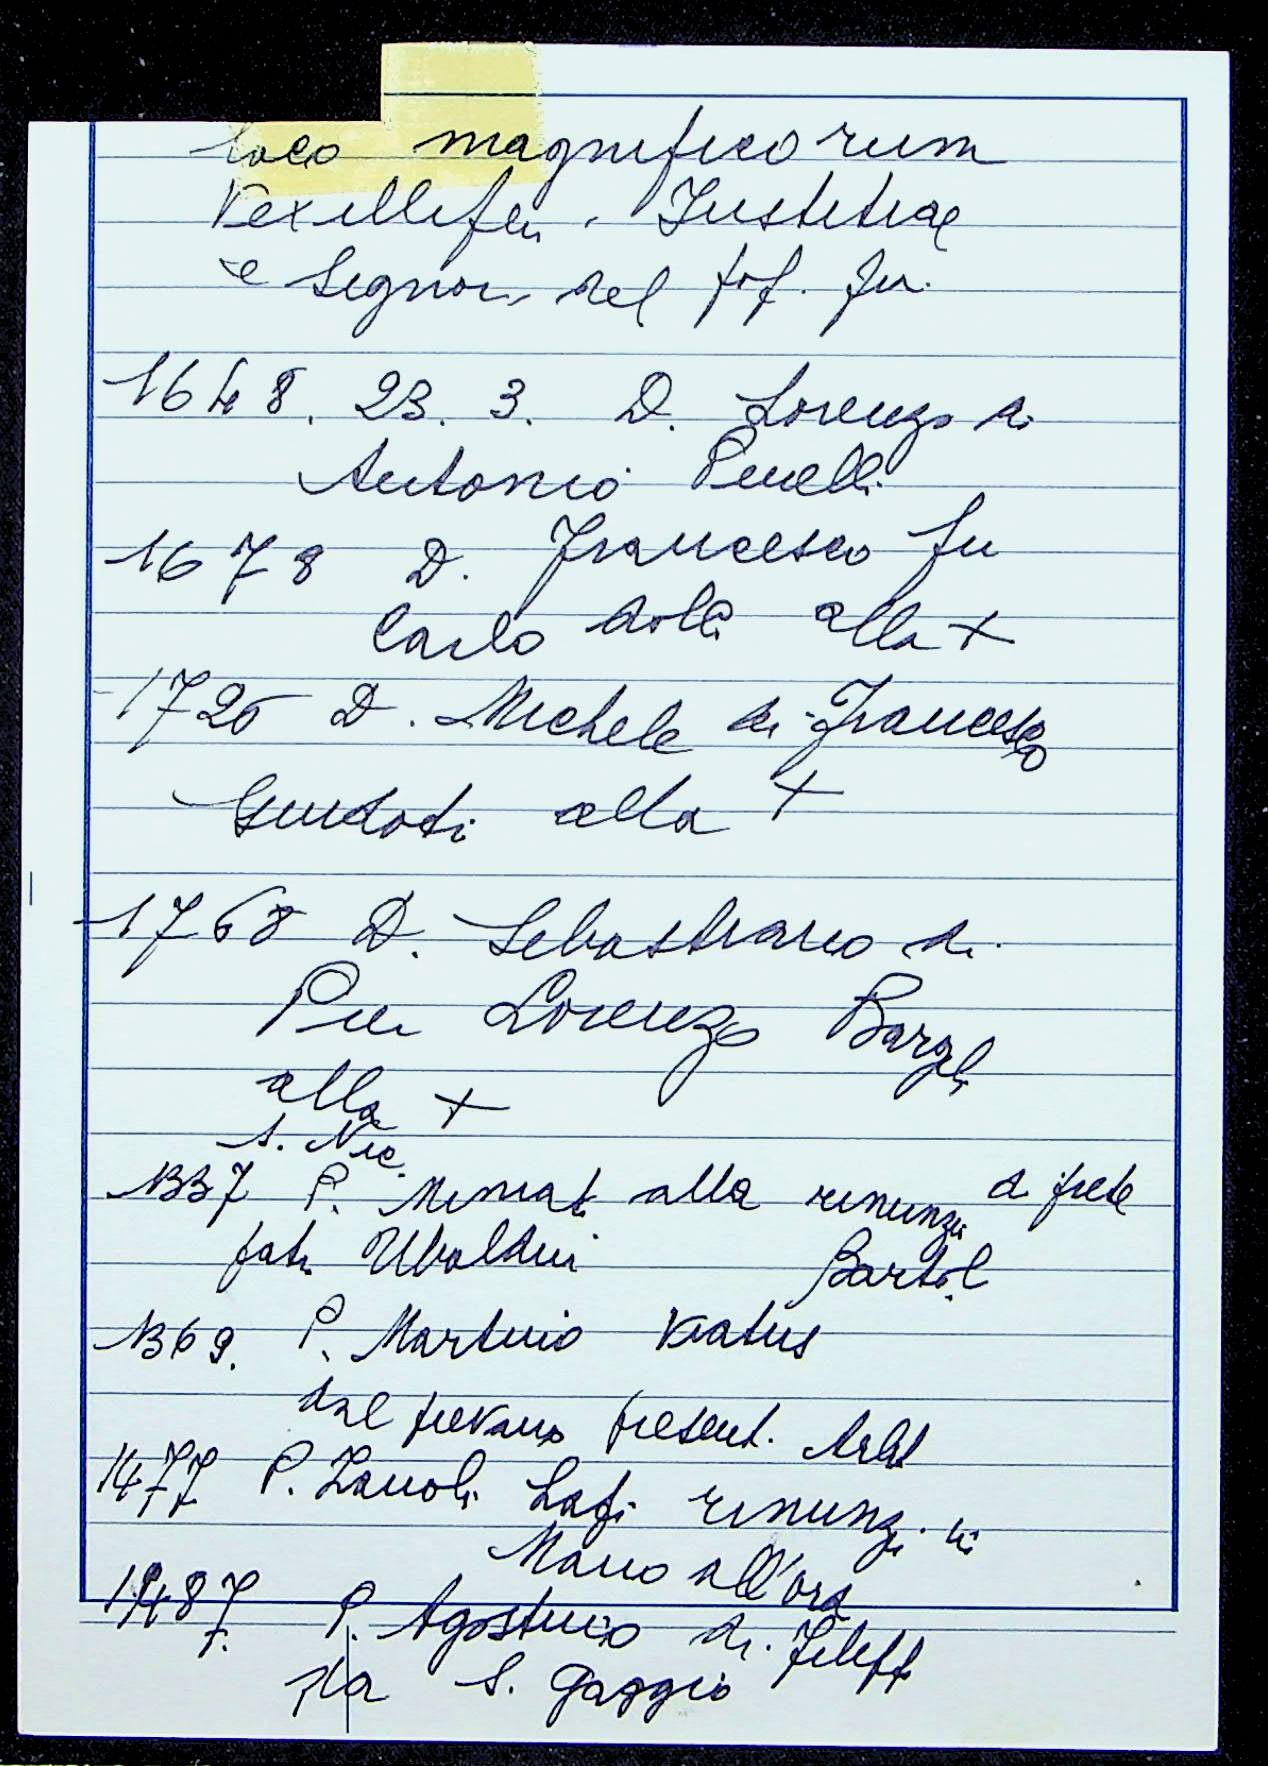 loco magnificorum
Vexilliferi Justitiae
e Signori del pop. fior.
1648. 23. 3. D. Lorenzo di
Antonio Pinelli
1678 D. Francesco fu
Carlo alla +
1726 D. Michele di Francesco
Guidoti alla +
1768 D. Sebastiano di
Pier Lorenzo Bargli
alla +
S. Nic.
1337 P. Miniat. alla rinunzia di prete
fatt. Ubaldini Bartol
1369. P. Martino Viatus
dal pievano present.
1477 P. Zanobi Lapi rinunzi. in
Mano all'ora
1487. P. Agostino di Filipp
S. Gaggio